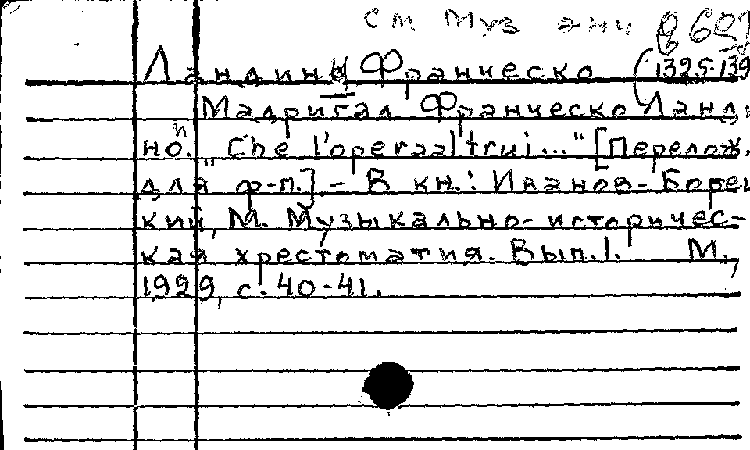 См Муз
Ландино, Франческо (1325-139
Мадригал Франческо Ланди-
но. "Che l'opera altrui..." [Перелож.
для ф-п.]. - В кн.: Иванов-Борец-
кий, М. Музыкально-историчес-
кая хрестоматия. Вып. 1. М.,
1929, с. 40-41.